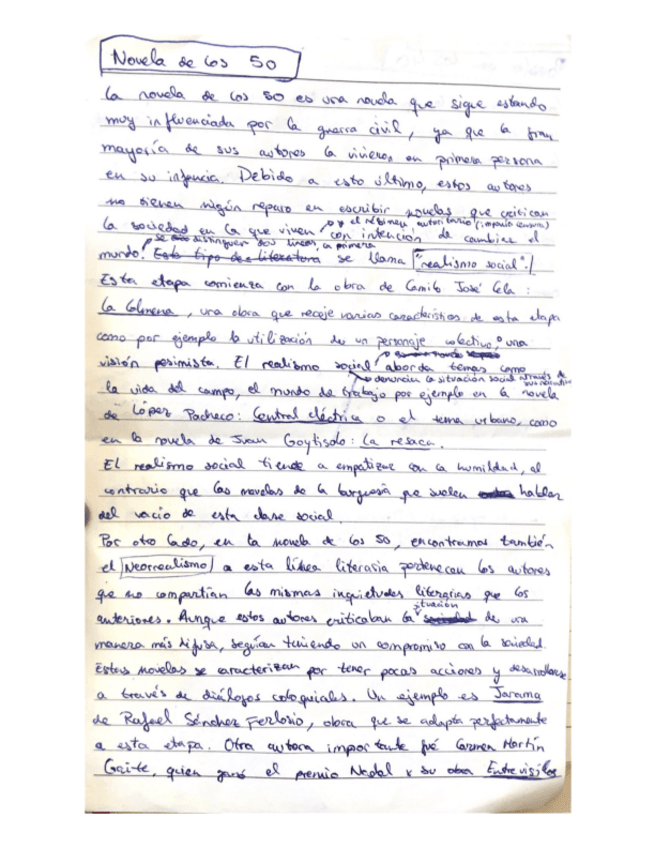 Novela de los 50
La novela de los 50 es una novela que sigue estando
muy influenciada por la guerra civil, ya que la gran
mayoría de sus autores la vivieron en primera persona
en su infancia. Debido a esto último, estos autores
no tienen nigún reparo en escribir novelas que critican
y el régimen autoritario (imponía censura)
la sociedad en la que viven con intención de cambiar el
se distinguen dos líneas, la primera
mundo. Este tipo de literatura se llama "realismo social".
Esta etapa comienza con la obra de Camilo José Cela:
La Colmena, una obra que recoje varias características de esta etapa
como por ejemplo la utilización de un personaje colectivo, o una
visión pesimista. El realismo social aborda temas como
denuncian la situación social a través de
la vida del campo, el mundo de trabajo por ejemplo en la novela
de López Pacheco: Central eléctrica o el tema urbano, como
en la novela de Juan Goytisolo: La resaca.
El realismo social tiende a empatizar con la humildad, al
contrario que las novelas de la burguesía que suelen hablar
del vacío de esta clase social.
Por otro lado, en la novela de los 50, encontramos también
el Neorrealismo, a esta línea literaria pertenecen los autores
que no compartían las mismas inquietudes literarias que los
situación
anteriores. Aunque estos autores criticaban la sociedad de una
manera más difusa, seguían teniendo un compromiso con la sociedad.
Estas novelas se caracterizan por tener pocas acciones y desarrollarse
a través de diálogos coloquiales. Un ejemplo es Jarama
de Rafael Sánchez Ferlosio, obra que se adapta perfectamente
a esta etapa. Otra autora importante fué Carmen Martín
Gaite, quien ganó el premio Nadal x su obra Entrevisillos